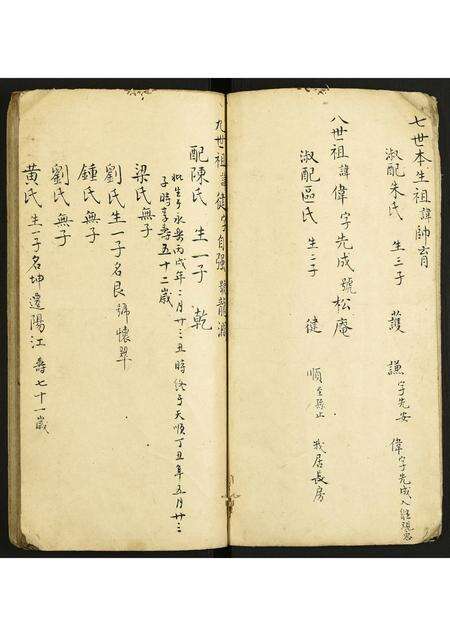 七世本生祖諱帥育
淑配朱氏 生三子 護 謙字先安 偉字先成入繼
八世祖諱偉字先成號松庵
淑配區氏 生二子 健 順 我居長房
九世祖諱健字自強號龍
配陳氏 生一子 乾
生于永樂丙戌年二月廿三丑時終于天順丁丑年五月廿三
子時享壽五十二歲
梁氏無子
劉氏生一子名艮號懷翠
鍾氏無子
劉氏無子
黃氏生一子名坤遷陽江壽七十一歲